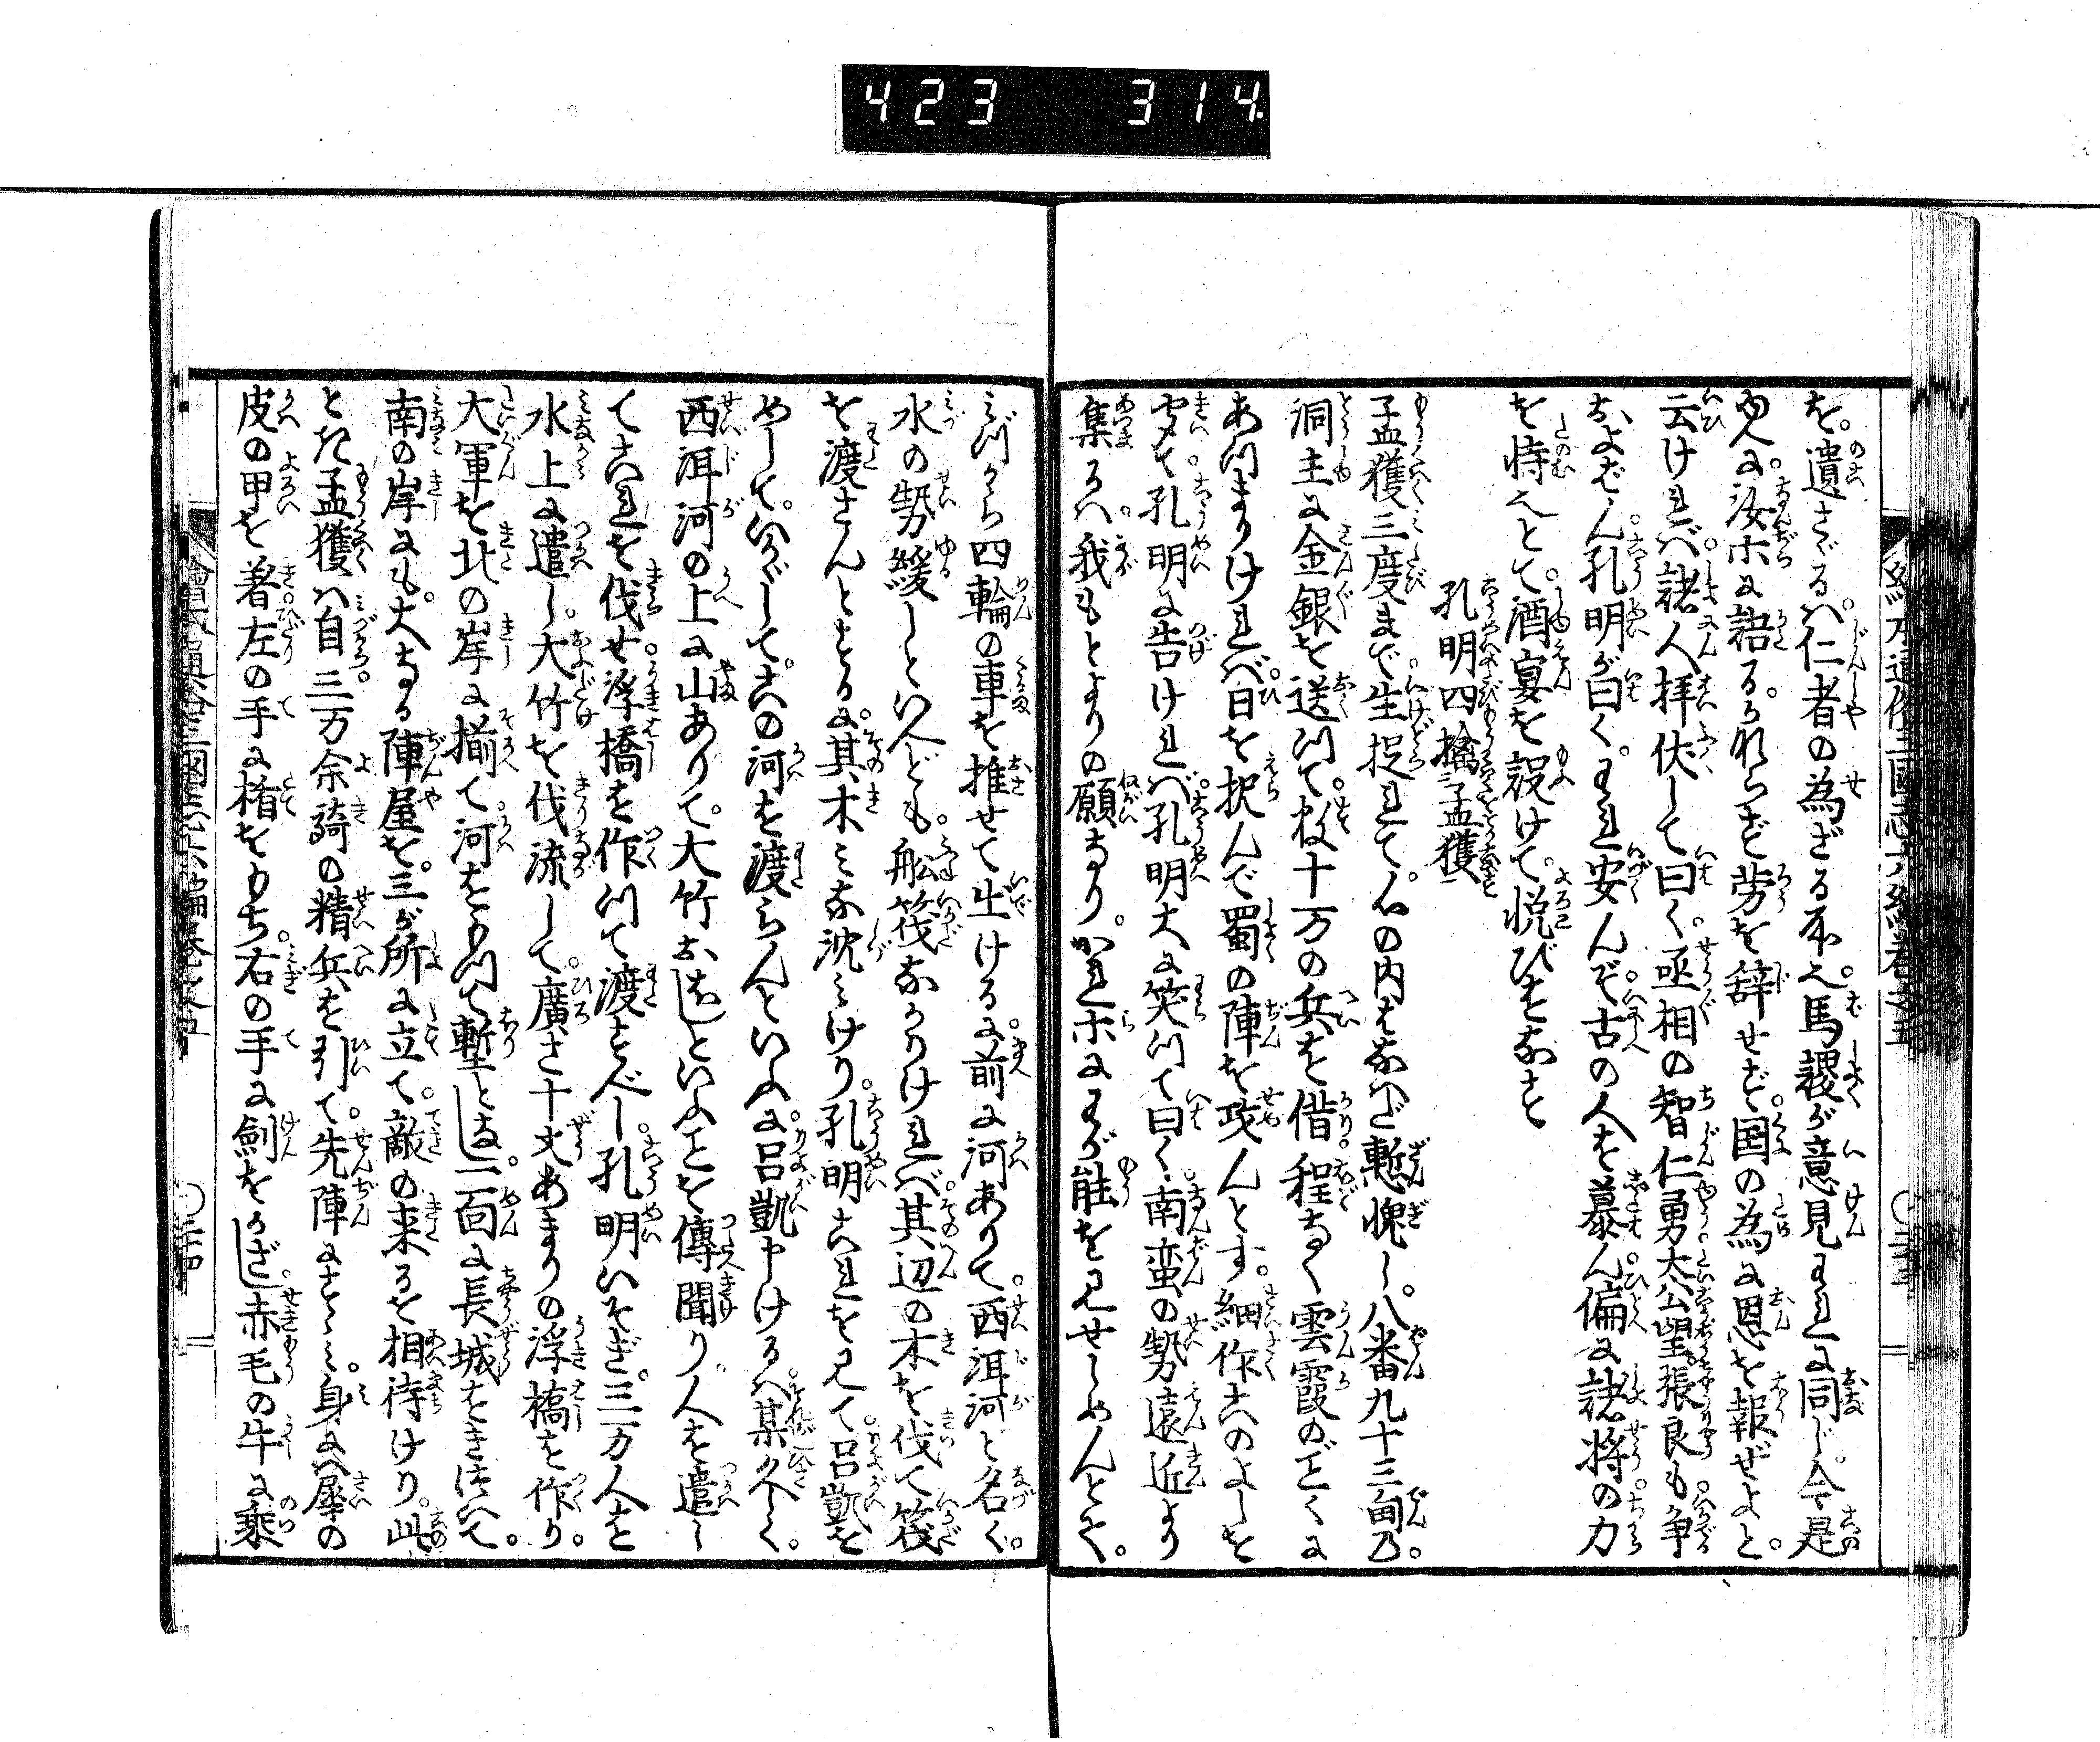 423 314.
を。遺さゞるハ。仁者の為ざる所也。馬謖が意見われに同じ。今是
ゆへに。汝ホに語る。かならず労を辞せず。国の為に恩を報ぜよと。
云けれバ。諸人拝伏して曰く。丞相の智仁勇。太公望。張良も。争
およばん。孔明が曰く。われ安んぞ。古の人を慕ん。偏に諸将の力
を恃むとて。酒宴を設けて。悦びをなす
孔明四擒孟獲
孟獲三度まで生捉れて。心の内をなハだ慙愧し。八番九十三甸乃。
洞主に金銀を送つて。数十万の兵を借。程なく雲霞のごとくに
あつまりけれバ。日を択んで蜀の陣を攻んとす。細作此のよしを
聞て。孔明に告けれバ。孔明大に笑つて曰く。南蛮の勢遠近より
集るハ。我もとよりの願なり。かれホにわが能を見せしめんとて。
ミづから四輪の車を推せて出ける。に前に河ありて。西洱河と名く。
水の勢緩しといへども。舩筏なかりけれバ。其辺の木を伐て筏
を渡さんとするに。其木ミな沈ミけり。孔明これを見て。呂凱を
めして。いかゞして。此の河を渡らんといふに。呂凱申けるハ。某久しく。
西洱河の上に山ありて。大竹おほしといふことを傳聞り。人を遣し
て是を伐せ。浮橋を作つて渡すべし。孔明いそぎ。三万人を
水上に遣し。大竹を伐流して。廣さ十丈あまりの浮橋を作り。
大軍を北の岸に揃て。河をもつて塹とし。一面に長城をきづいて。
南の岸にも。大なる陣屋を。三が所に立て。敵の来るを相待けり。此
とき孟獲ハ。自三万余騎の精兵を引て。先陣にすゝミ。身にハ犀の
皮の甲を着。左の手に楯をもち。右の手に劍をかざし。赤毛の牛に乗